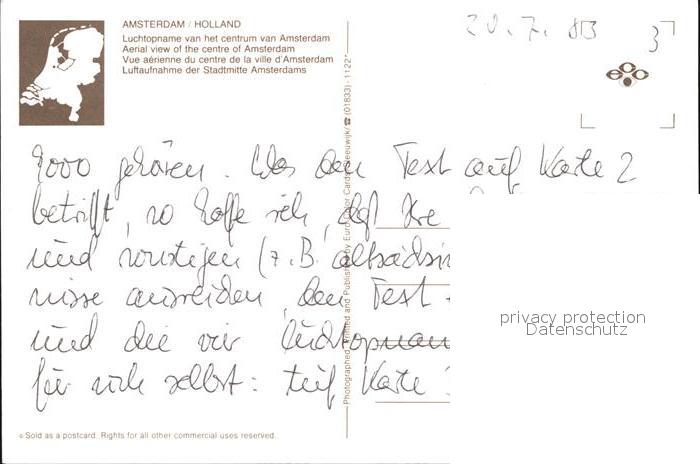 AMSTERDAM / HOLLAND
Luchtopname van het centrum van Amsterdam
Aerial view of the centre of Amsterdam
Vue aérienne du centre de la ville d'Amsterdam
Luftaufnahme der Stadtmitte Amsterdams
20.7.83
3
gehören. Was den Text auf Karte 2
betrifft, so hoffe ich, daß Ihre
und sonstigen (z.B. altsächsi
nisse ausreichen, den Text
und die vier Luchtopnam
für sich selbst: Auf Karte 3
Photographed, Printed and Published by Euro Color Cards Leeuwijk/☎(01833)-1122*
privacy protection
Datenschutz
© Sold as a postcard. Rights for all other commercial uses reserved.